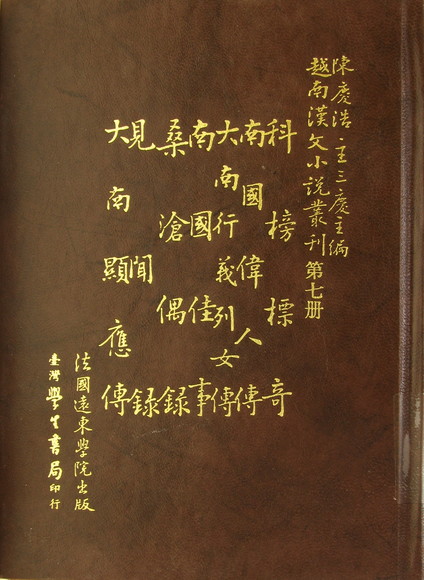 陳慶浩·王三慶主編
越南漢文小說叢刊第七册
科榜標奇
南國偉人傳
大南行義列女傳
南國佳事
桑滄偶錄
見聞錄
大南顯應傳
法國遠東學院出版
臺灣學生書局印行